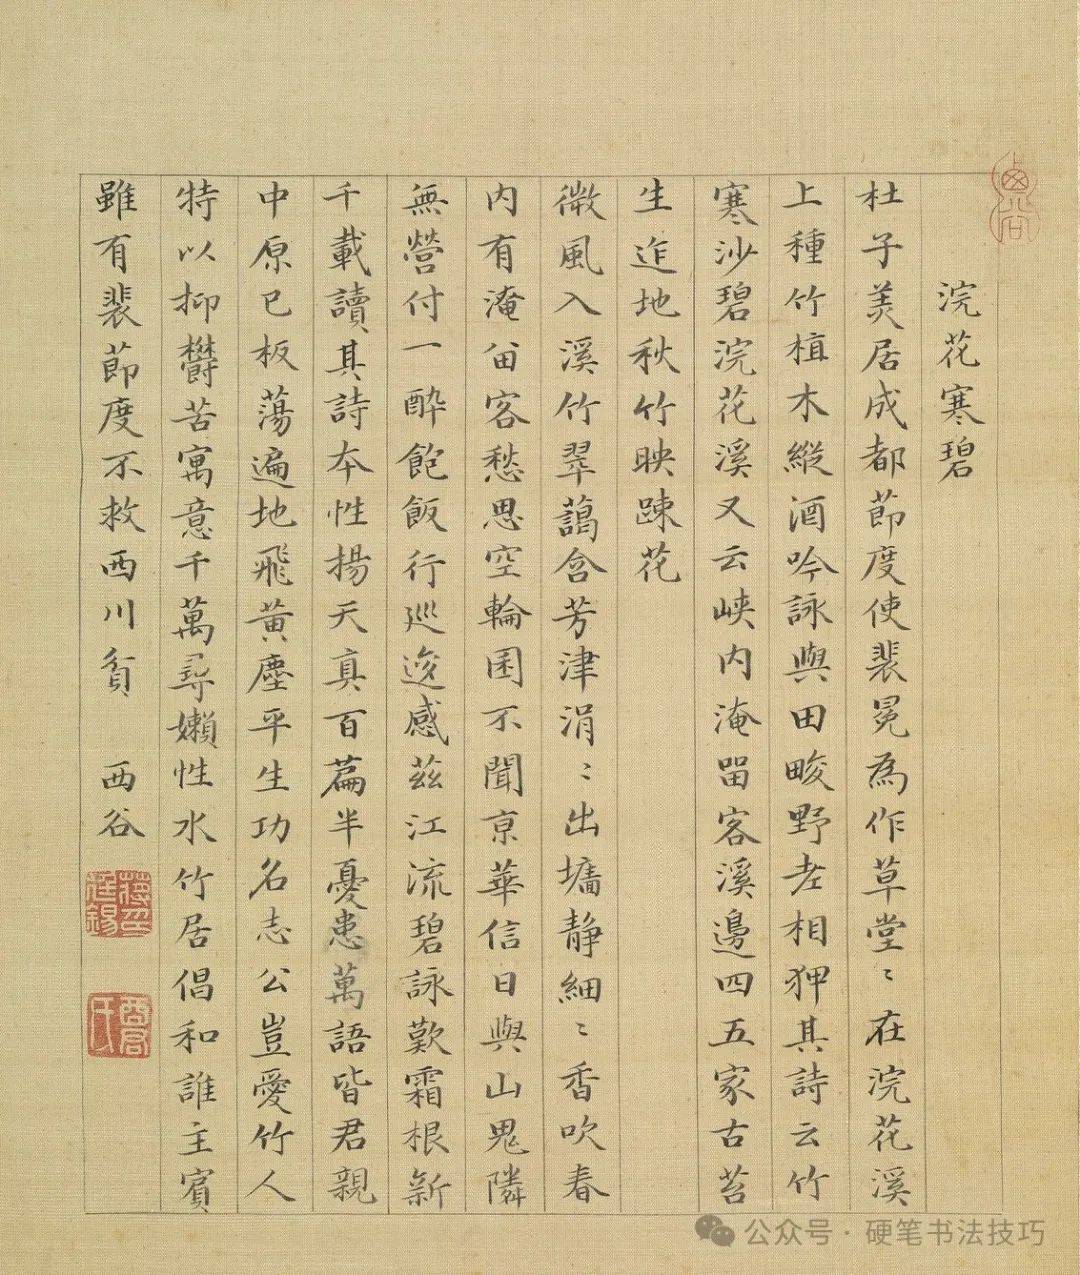 浣花寒碧
杜子美居成都節度使裴冕為作草堂〻在浣花溪
上種竹植木縱酒吟詠與田畯野老相狎其詩云竹
寒沙碧浣花溪又云峽内淹留客溪邊四五家古苔
生迮地秋竹映疎花
微風入溪竹翠藹含芳津涓〻出墉静細〻香吹春
内有淹留客愁思空輪囷不聞京華信日與山鬼隣
無營付一酔飽飯行巡逡感兹江流碧詠歎霜根新
千載讀其詩本性揚天真百篇半憂患萬語皆君親
中原已板蕩遍地飛黄塵平生功名志公豈愛竹人
特以抑欝苦寓意千萬尋嬾性水竹居倡和誰主賓
雖有裴節度不救西川貧 西谷
公众号·硬笔书法技巧